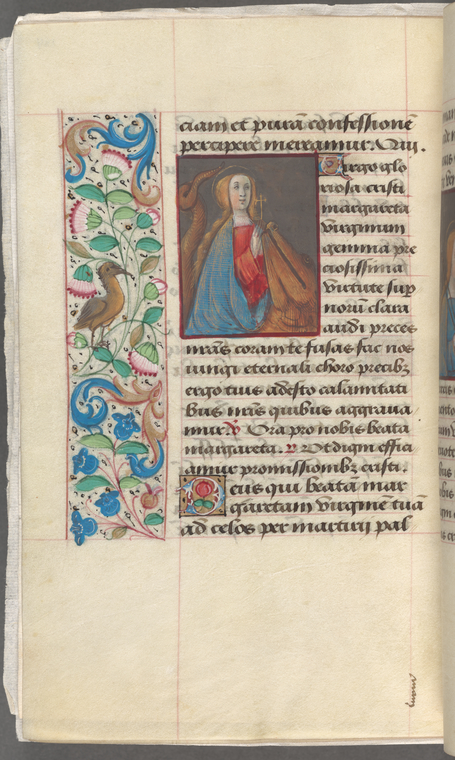 ciam et purā confessionē
percipere mereamur. Qui.
Virgo glo
riosa cristi
margareta
virginum
gemma pre
ciosissima
virtute sup
norū clara
audi preces
nr̄as coram te fusas fac nos
iungi eternali choro precibꝫ
ergo tuis adesto calamitati
bus nr̄is quibus aggraua
mur. v̓ Ora pro nobis beata
margareta. ꝶ Vt digni effici
amur promissionibꝫ cristi.
Deus qui beatā mar
garetam virginē tuā
ad celos per martirij pal